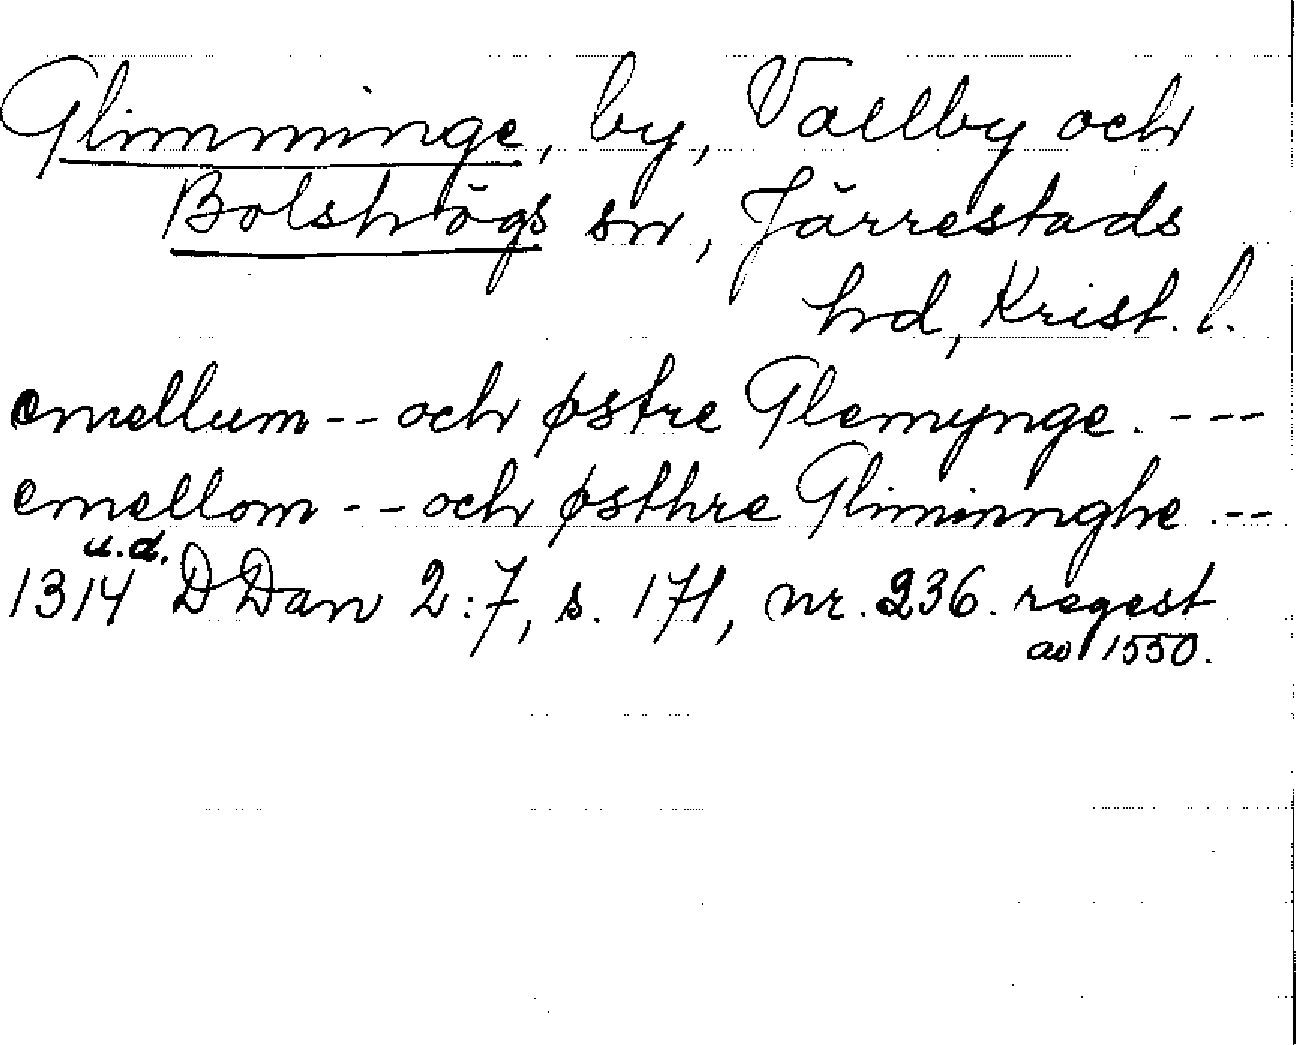 Glimminge, by, Vallby och
Bolshögs sn, Järrestads
hd, Krist. l.
emellum -- och østre Glemynge. ---
emellom -- och østhre Gliminnghe. --
u.d.
1314 DDan 2:7, s. 171, nr. 236. regest
av 1550.